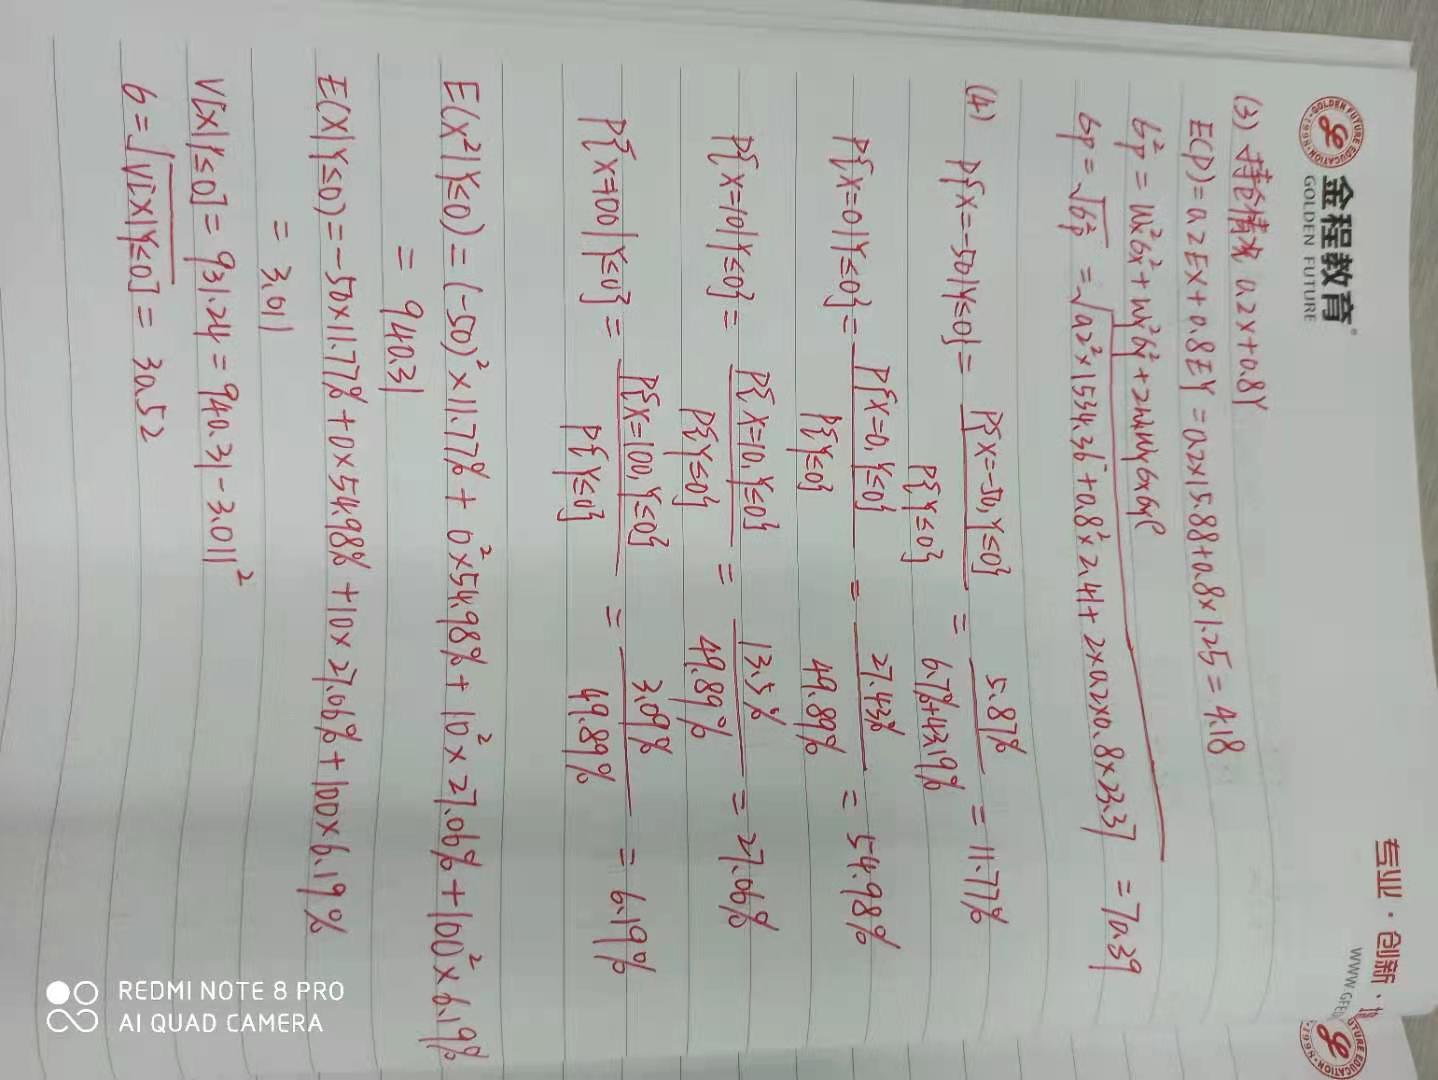 金程教育
GOLDEN FUTURE
GOLDEN FUTURE EDUCATION
专业·创新·
(3) 持仓情况 0.2X+0.8Y
E(P)=0.2EX+0.8EY=0.2×15.88+0.8×1.25=4.18
6²p=Wx²6x²+Wy²6y²+2WxWy6x6yρ
6p=√6²p=√0.2²×1534.36+0.8²×2.41+2×0.2×0.8×23.37=70.39
(4) P{X=-50|Y≤0}=P{X=-50,Y≤0}/P{Y≤0}=5.87%/6.7%+43.19%=11.77%
P{X=0|Y≤0}=P{X=0,Y≤0}/P{Y≤0}=27.43%/49.89%=54.98%
P{X=10|Y≤0}=P{X=10,Y≤0}/P{Y≤0}=13.5%/49.89%=27.06%
P{X=100|Y≤0}=P{X=100,Y≤0}/P{Y≤0}=3.09%/49.89%=6.19%
E(X²|Y≤0)=(-50)²×11.77%+0²×54.98%+10²×27.06%+100²×6.19%
=940.31
E(X|Y≤0)=-50×11.77%+0×54.98%+10×27.06%+100×6.19%
=3.011
V[X|Y≤0]=931.24=940.31-3.011²
6=√V[X|Y≤0]=30.52
REDMI NOTE 8 PRO
AI QUAD CAMERA